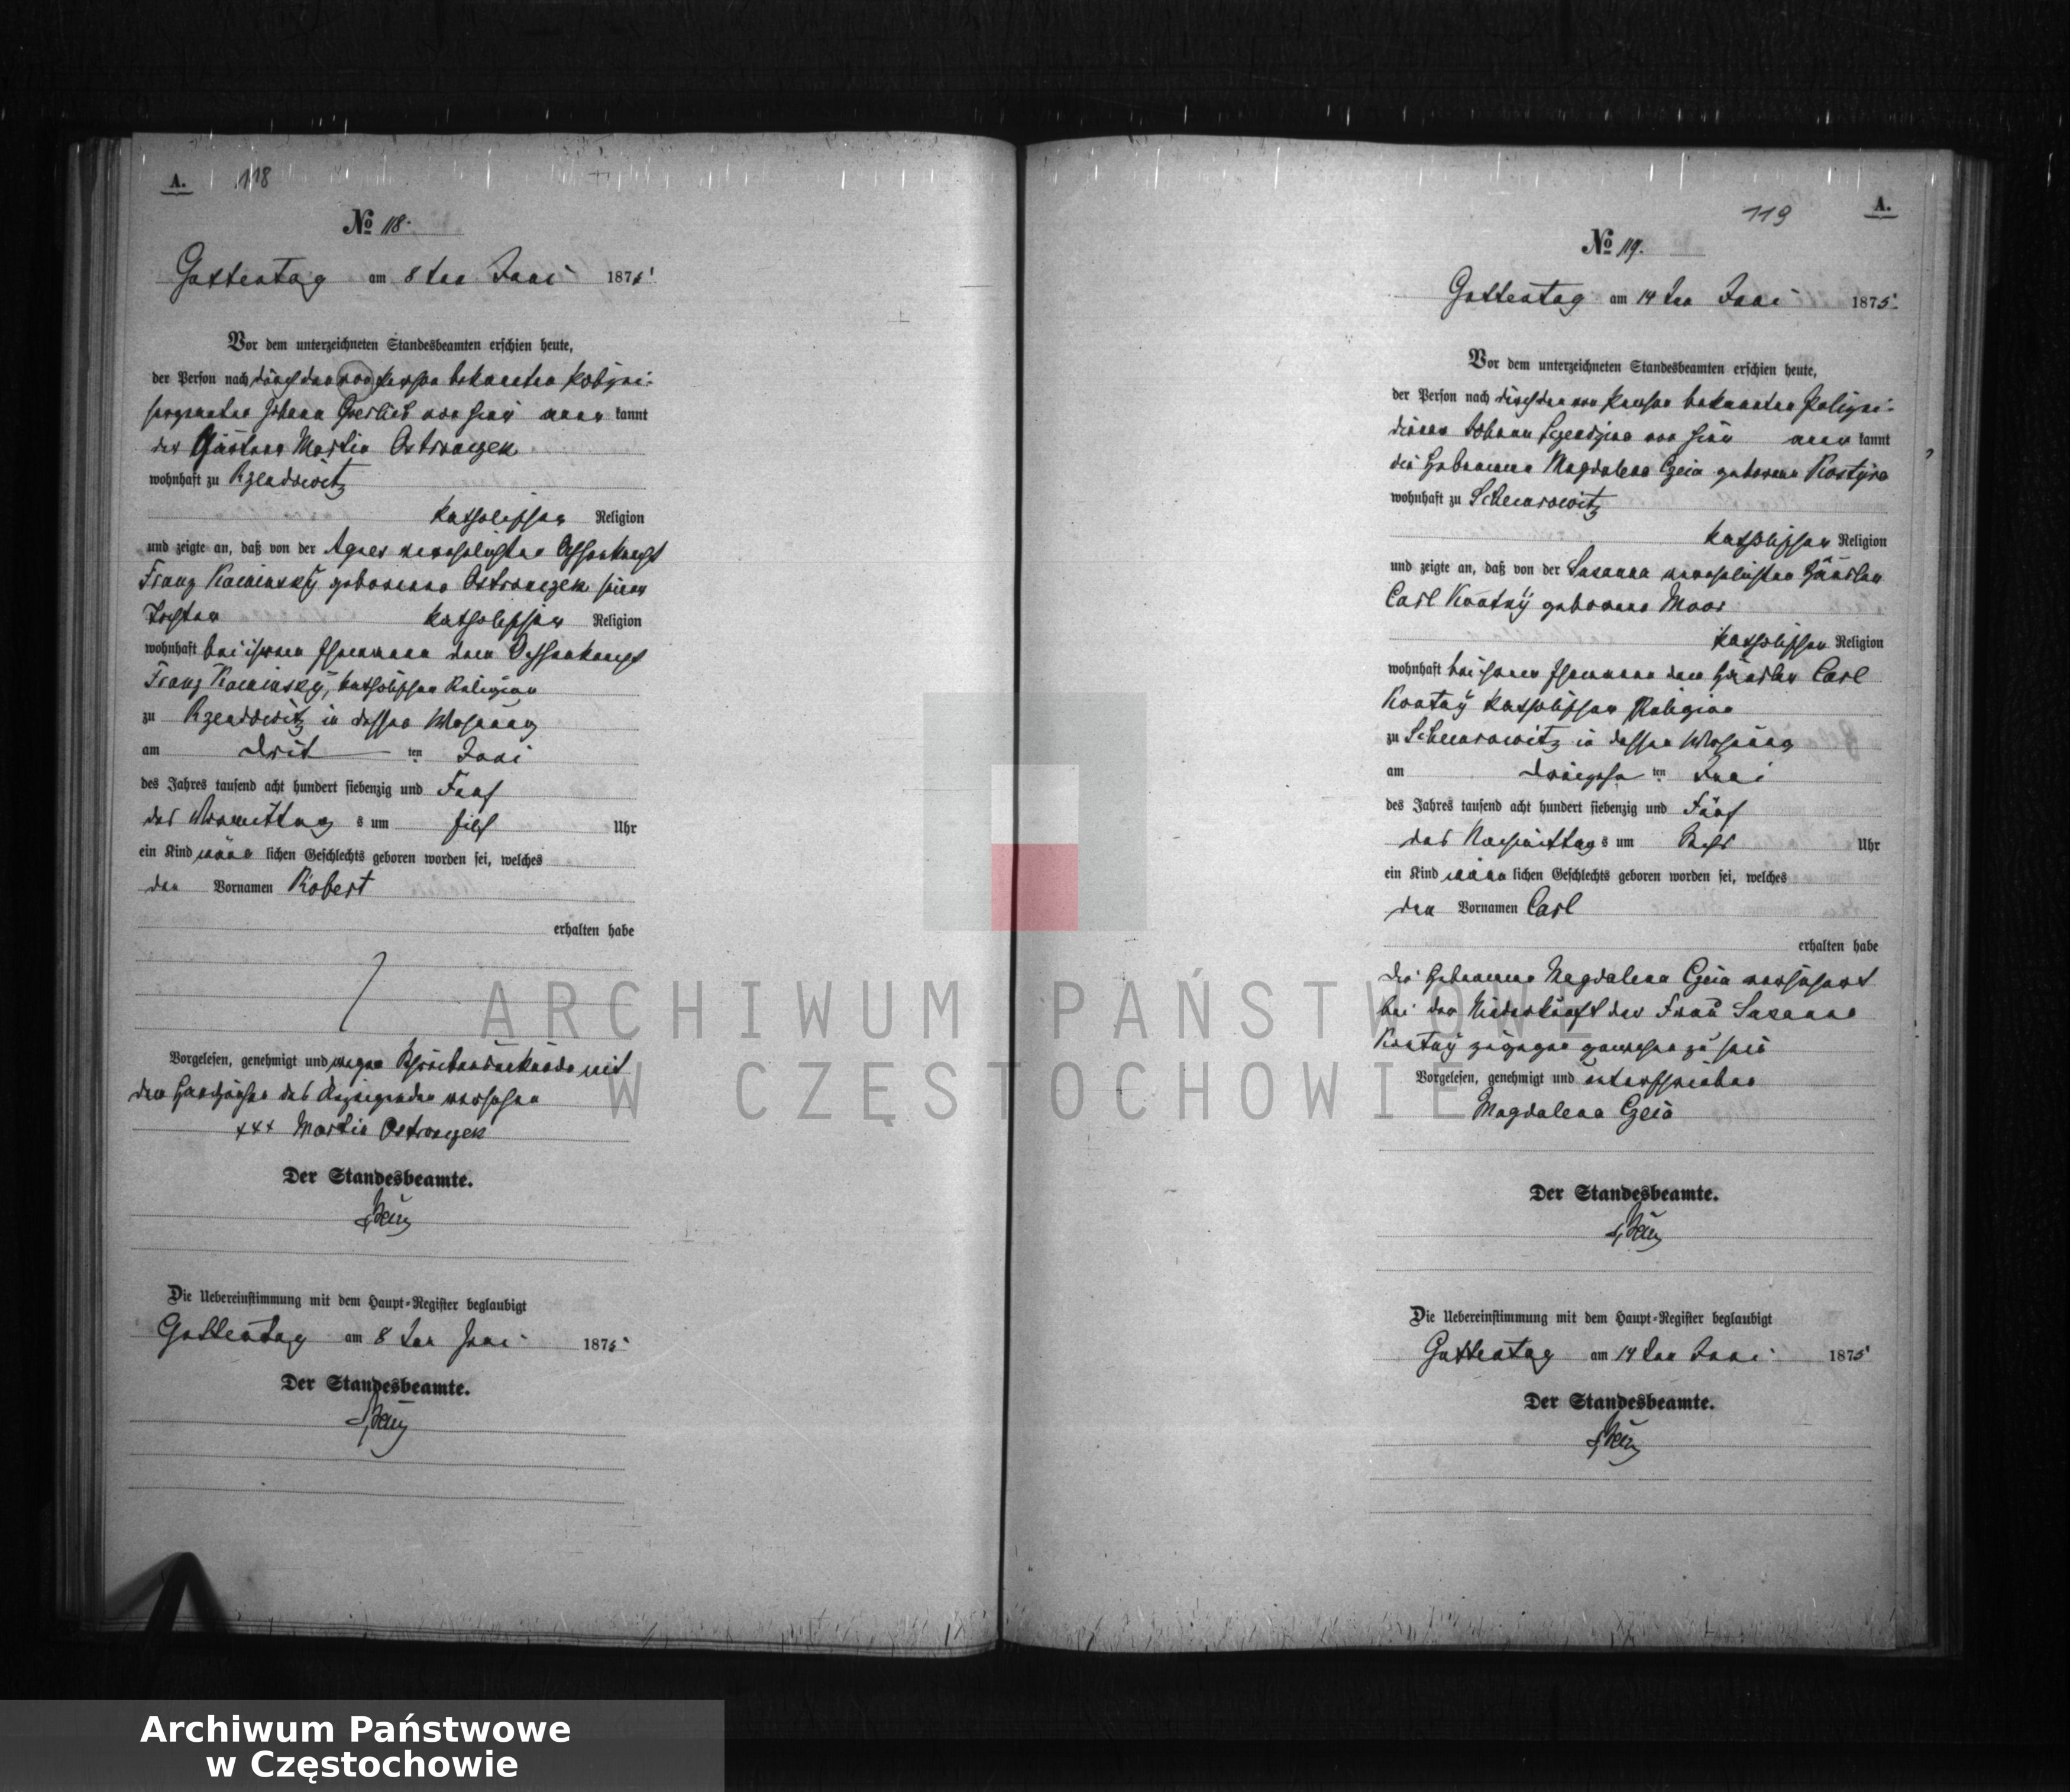 A.
118
№ 118.
Guttentag am 8ten Juni 1875.
Vor dem unterzeichneten Standesbeamten erschien heute,
der Person nach durch den von Person bekannten Polizei-
sergeanten Johann von hier aner kannt
der Martin Ostronczek
wohnhaft zu Rzendowitz
katholischer Religion
und zeigte an, daß von der Agnes verehelichten Ochsenknecht
Franz Kaminsky geborenen Ostronczek seiner
Tochter katholischer Religion
wohnhaft bei ihrem Ehemanne dem Ochsenknecht
Franz Kaminsky, katholischer Religion
zu Rzendowitz in dessen Wohnung
am drit ten Juni
des Jahres tausend acht hundert siebenzig und Fünf
des Vormittag s um Uhr
ein Kind männ lichen Geschlechts geboren worden sei, welches
den Vornamen Robert
erhalten habe
Vorgelesen, genehmigt und wegen Schreibensunkunde mit
den Handzeichen des Anzeigenden versehen
+++ Martin Ostronczek
Der Standesbeamte.
Die Uebereinstimmung mit dem Haupt-Register beglaubigt
Guttentag am 8ten Juni 1875
Der Standesbeamte.
119
A.
№ 119.
Guttentag am 14ten Juni 1875.
Vor dem unterzeichneten Standesbeamten erschien heute,
der Person nach durch den von Person bekannten Polizei-
diener Johann von hier aner kannt
die Hebamme Magdalena Czeia geborene Kostyra
wohnhaft zu Schemrowitz
katholischer Religion
und zeigte an, daß von der Susanna verehelichten Häusler
Carl Kvatny geborene Moor
katholischer Religion
wohnhaft bei ihrem Ehemanne dem Häusler Carl
Kvatny katholischer Religion
zu Schemrowitz in dessen Wohnung
am dreizehn ten Juni
des Jahres tausend acht hundert siebenzig und Fünf
des Nachmittag s um Sechs Uhr
ein Kind männ lichen Geschlechts geboren worden sei, welches
den Vornamen Carl
erhalten habe
die Hebamme Magdalena Czeia versichert
bei der Niederkunft der Frau Susanna
Kvatny zugegen gewesen zu sein
Vorgelesen, genehmigt und unterschrieben
Magdalena Czeia
Der Standesbeamte.
Die Uebereinstimmung mit dem Haupt-Register beglaubigt
Guttentag am 14ten Juni 1875
Der Standesbeamte.
ARCHIWUM PAŃSTWOWE
W CZĘSTOCHOWIE
Archiwum Państwowe
w Częstochowie